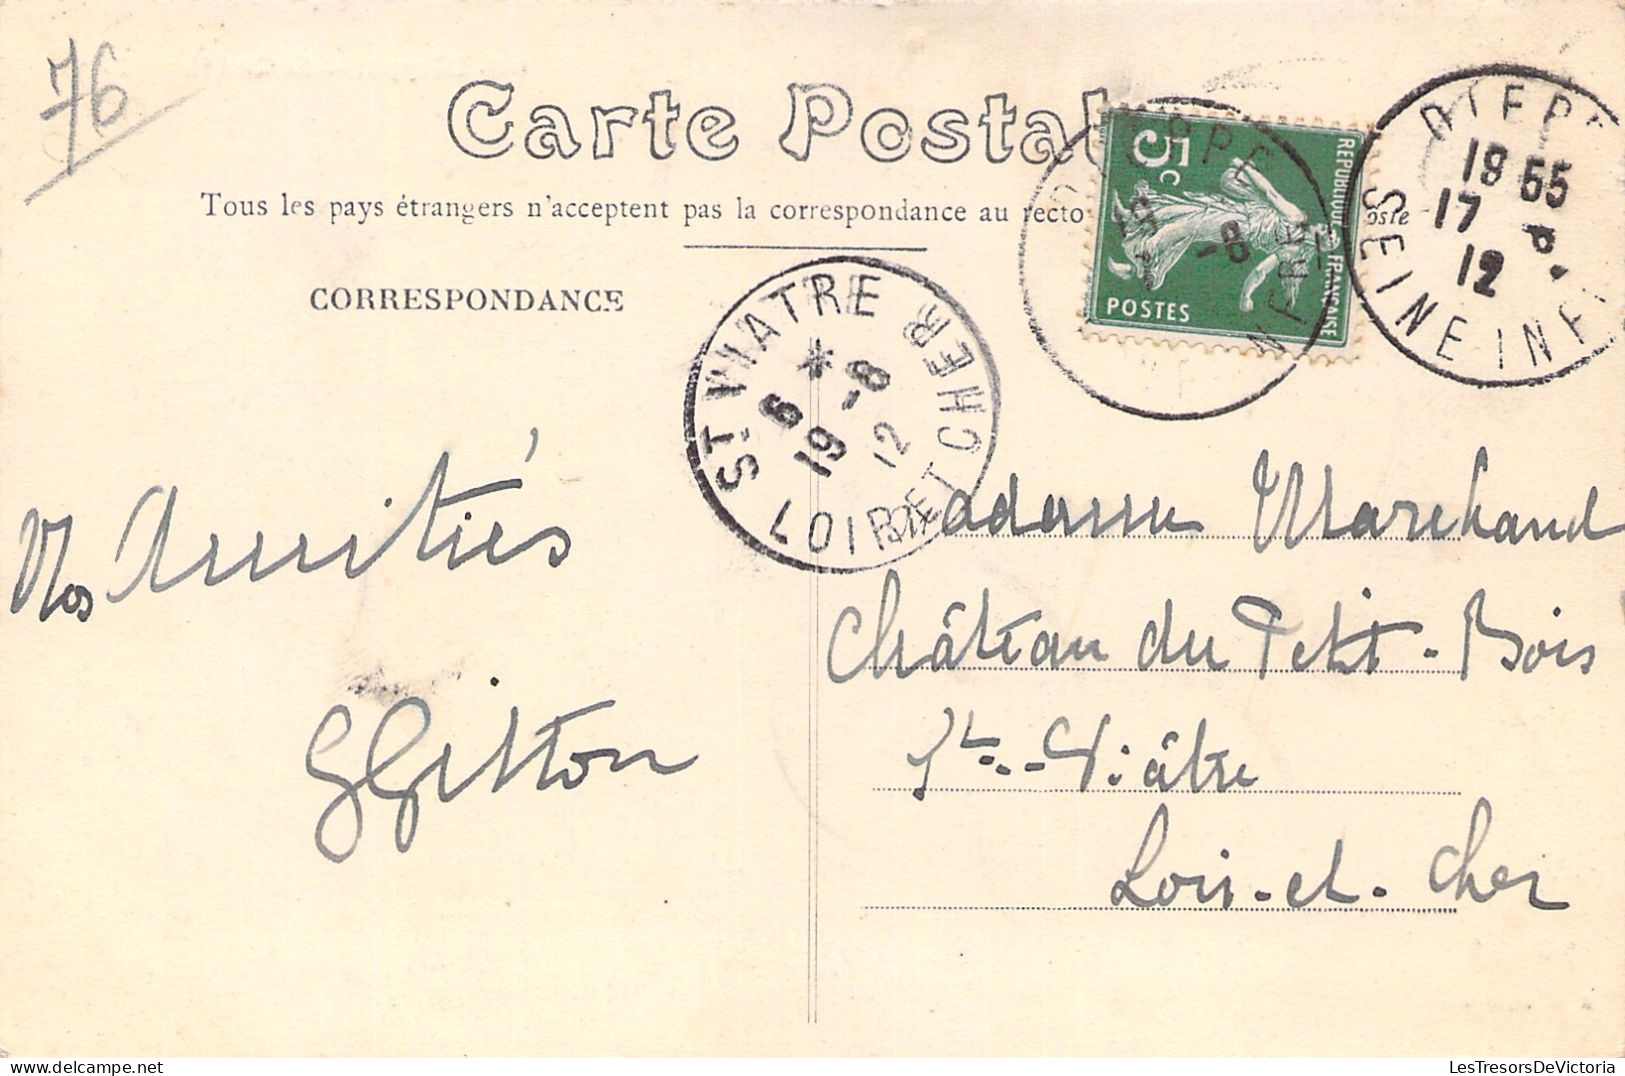 76
Carte Postale
Tous les pays étrangers n'acceptent pas la correspondance au recto
oste
CORRESPONDANCE
5c
POSTES
REPUBLIQUE FRANÇAISE
DIEPPE
-8
DIEPP
18 55
17 8
12
SEINE INF
ST VIATRE
6 *
19 -8
12
LOIR ET CHER
Nos Amitiés
GGitton
Madame Marchand
Château du Petit-Bois
St-Viâtre
Loir-et-Cher
LesTresorsDeVictoria